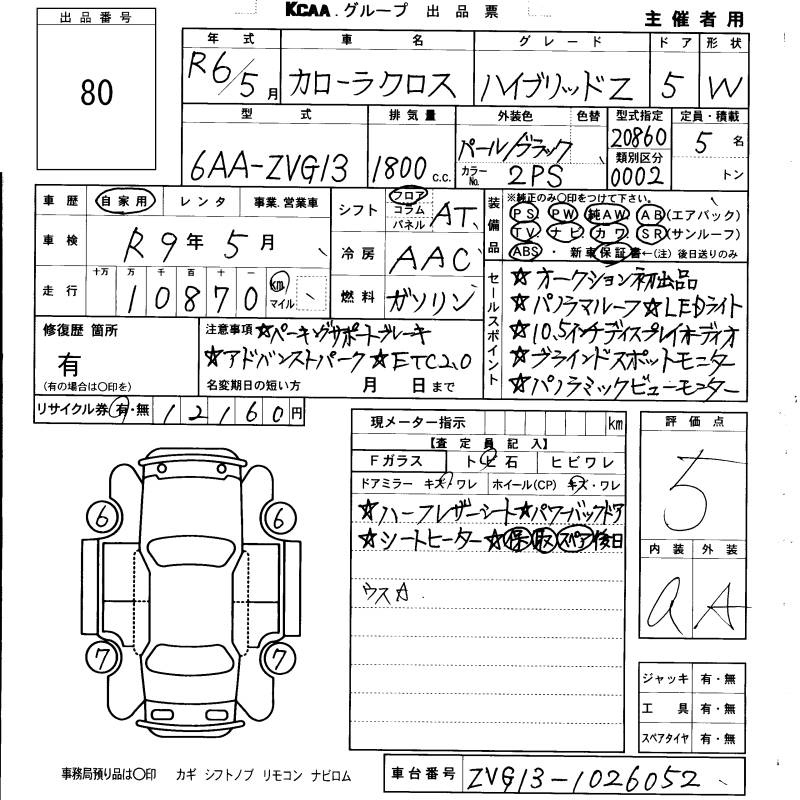 KCAA.グループ 出品票
主催者用
出品番号
80
年式 車名 グレード ドア 形状
R6/5月 カローラクロス ハイブリッドZ 5 W
型式 排気量 外装色 色替 型式指定 定員・積載
6AA-ZVG13 1800c.c. パール/ブラック 20860 5名
カラーNo. 2PS 類別区分 0002 トン
車歴 自家用 レンタ 事業.営業車
車検 R9年5月
走行 十万 万 千 百 十 km マイル
10870
シフト フロア コラム パネル AT
冷房 AAC
燃料 ガソリン
装備品 ※純正のみ○印をつけて下さい。
PS PW 純AW AB(エアバック)
TV ナビ カワ SR(サンルーフ)
ABS ・ 新車保証書←(注)後日送りのみ
セールスポイント
☆オークション初出品
☆パノラマルーフ☆LEDライト
☆10.5インチディスプレイオーディオ
☆ブラインドスポットモニター
☆パノラミックビューモニター
修復歴 箇所
有
(有の場合は○印を)
注意事項 ☆パーキングサポートブレーキ
☆アドバンストパーク☆ETC2.0
名変期日の短い方 月 日まで
リサイクル券 有・無 12160円
現メーター指示 km
【査定員記入】
Fガラス トビ石 ヒビワレ
ドアミラー キズ・ワレ ホイール(CP) キズ・ワレ
☆ハーフレザーシート☆パワーバックドア
☆シートヒーター☆保 取 スペア 後日
ウスA.
評価点
5
内装 外装
a A
6 6
7 7
ジャッキ 有・無
工具 有・無
スペアタイヤ 有・無
事務局預り品は○印 カギ シフトノブ リモコン ナビロム
車台番号 ZVG13-1026052